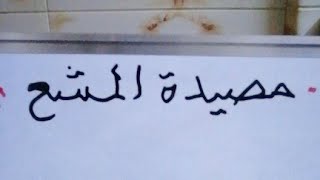 مصيدة المشع